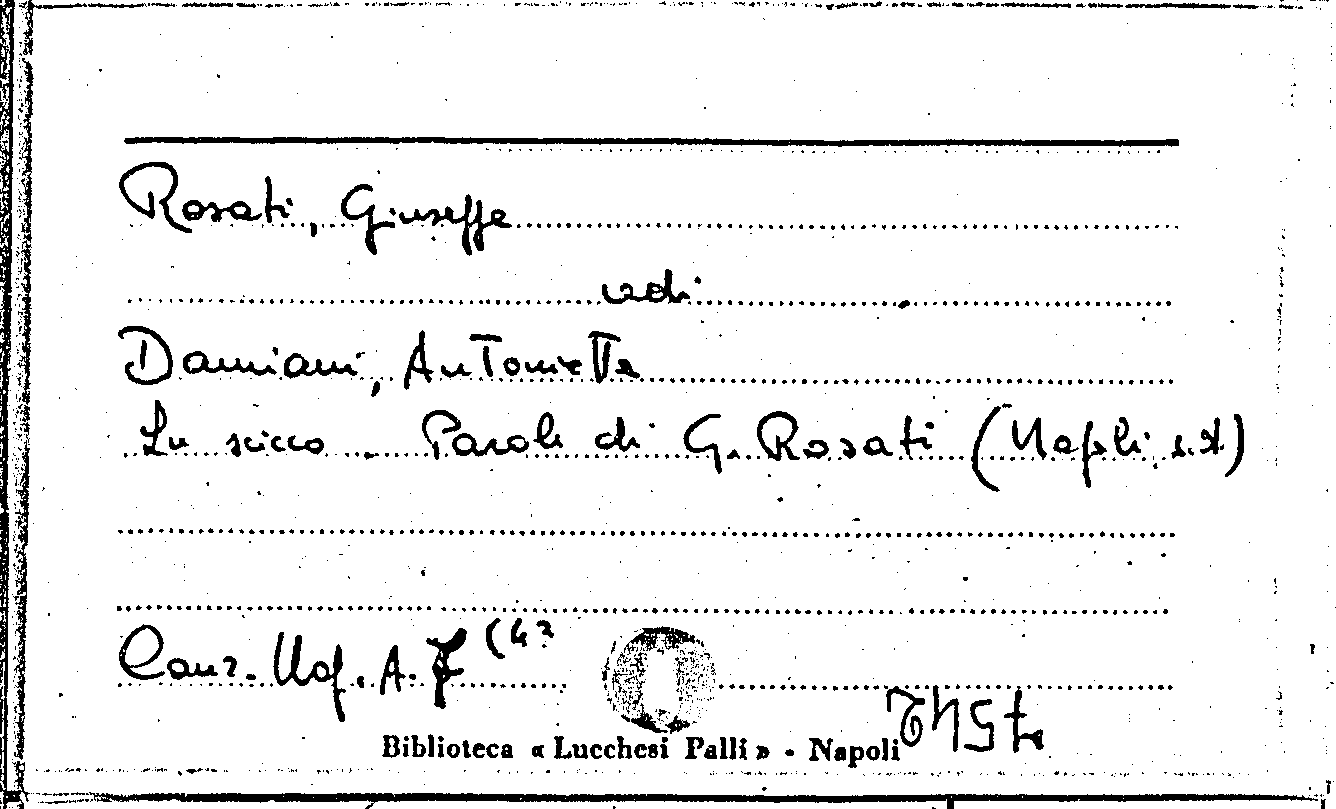 Rosati, Giuseppe
vedi
Damiani, Antonietta
Lu sicco. Parole di G. Rosati (Napoli, s.d.)
Canz. Nap. A. 7 (43
Biblioteca « Lucchesi Palli » - Napoli